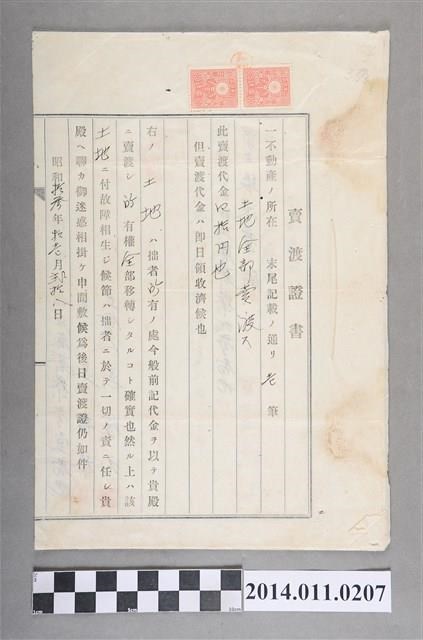 賣渡證書
一不動產ノ所在 末尾記載ノ通リ 壱筆
土地全部賣渡ス
此賣渡代金四拾円也
但賣渡代金ハ即日領收濟候也
右ノ土地ハ拙者所有ノ處今般前記代金ヲ以テ貴殿
ニ賣渡シ所有權全部移轉シタルコト確實也然ル上ハ該
土地ニ付故障相生シ候節ハ拙者ニ於テ一切ノ責ニ任シ貴
殿ヘ聊カ御迷惑相掛ケ申間敷候爲後日賣渡證仍如件
昭和拾参年拾壱月弐拾八日
1cm 5cm 10cm
2014.011.0207